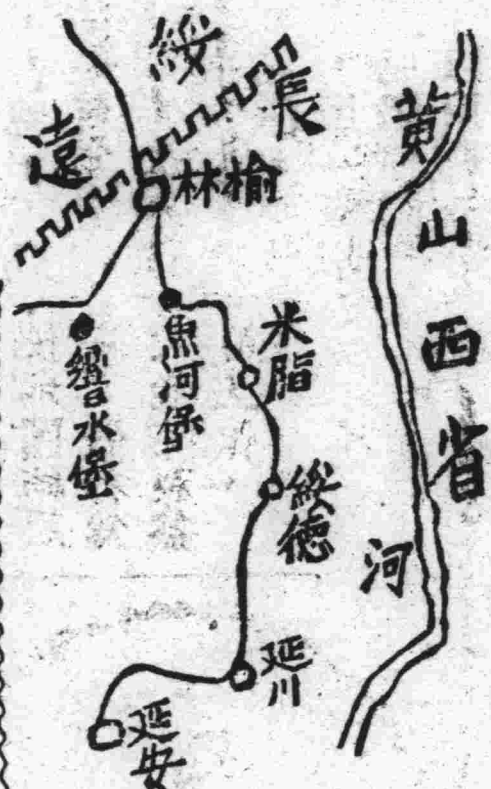 綏
遠
長
林榆
黄
河
山西省
魚河堡
響水堡
米脂
綏德
延川
延安